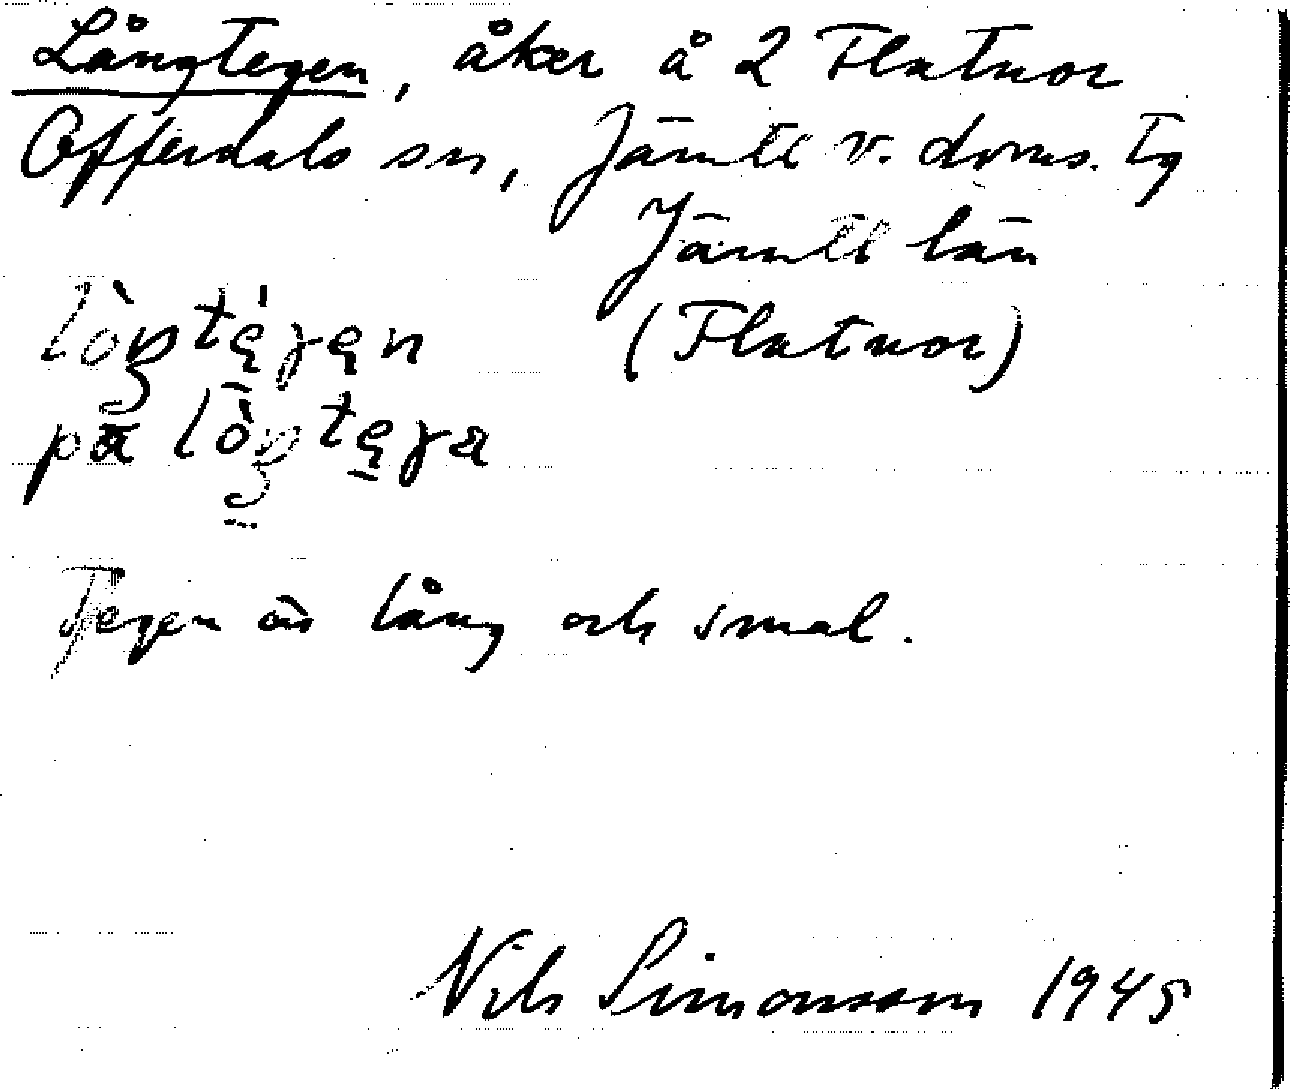 Långtegen, åker å 2 Flatnor
Offerdals sn, Jämtl v. doms. tg
Jämtl län
(Flatnor)
på
Tegen är lång och smal.
Nils Simonsson 1945